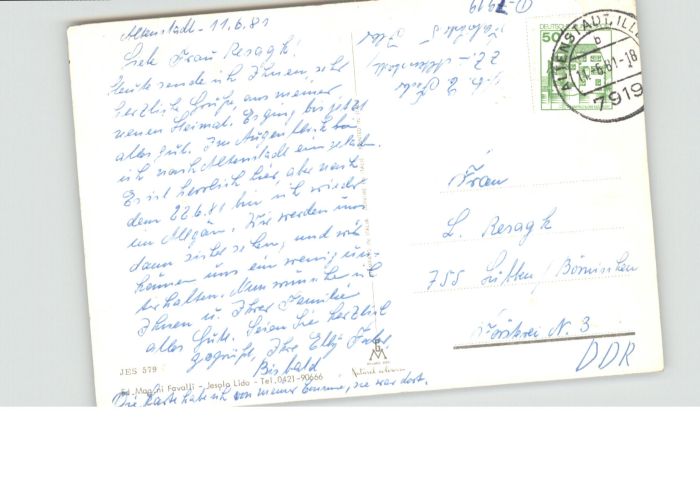 Altenstadt - 11.6.81
Liebe Frau Resagk!
Heute sende ich Ihnen, sehr
herzliche Grüße, aus meiner
neuen Heimat. Es ging bis jetzt
alles gut. Im Augenblick bin
ich nach Altenstadt eingeladen.
Es ist herrlich hier, aber nach
dem 22.6.81 bin ich wieder
im Allgäu. Wir werden uns
dann sicher sehen, und wir
können uns ein wenig un-
terhalten. Nun wünsche ich
Ihnen u. Ihrer Familie
alles Gute. Seien Sie herzlich
gegrüßt, Ihre Elly
Bis bald
Die Karte hab ich von meiner sie war dort.
JES 579
Ed. Magrini Favalli - Jesolo Lido - Tel. 0421-90666
D-7919
50
ALTENSTADT, ILLER
b
11.-6.81-18
7919
Frau
L. Resagk
755 Lübben/Börnichen
Försterei N. 3
DDR